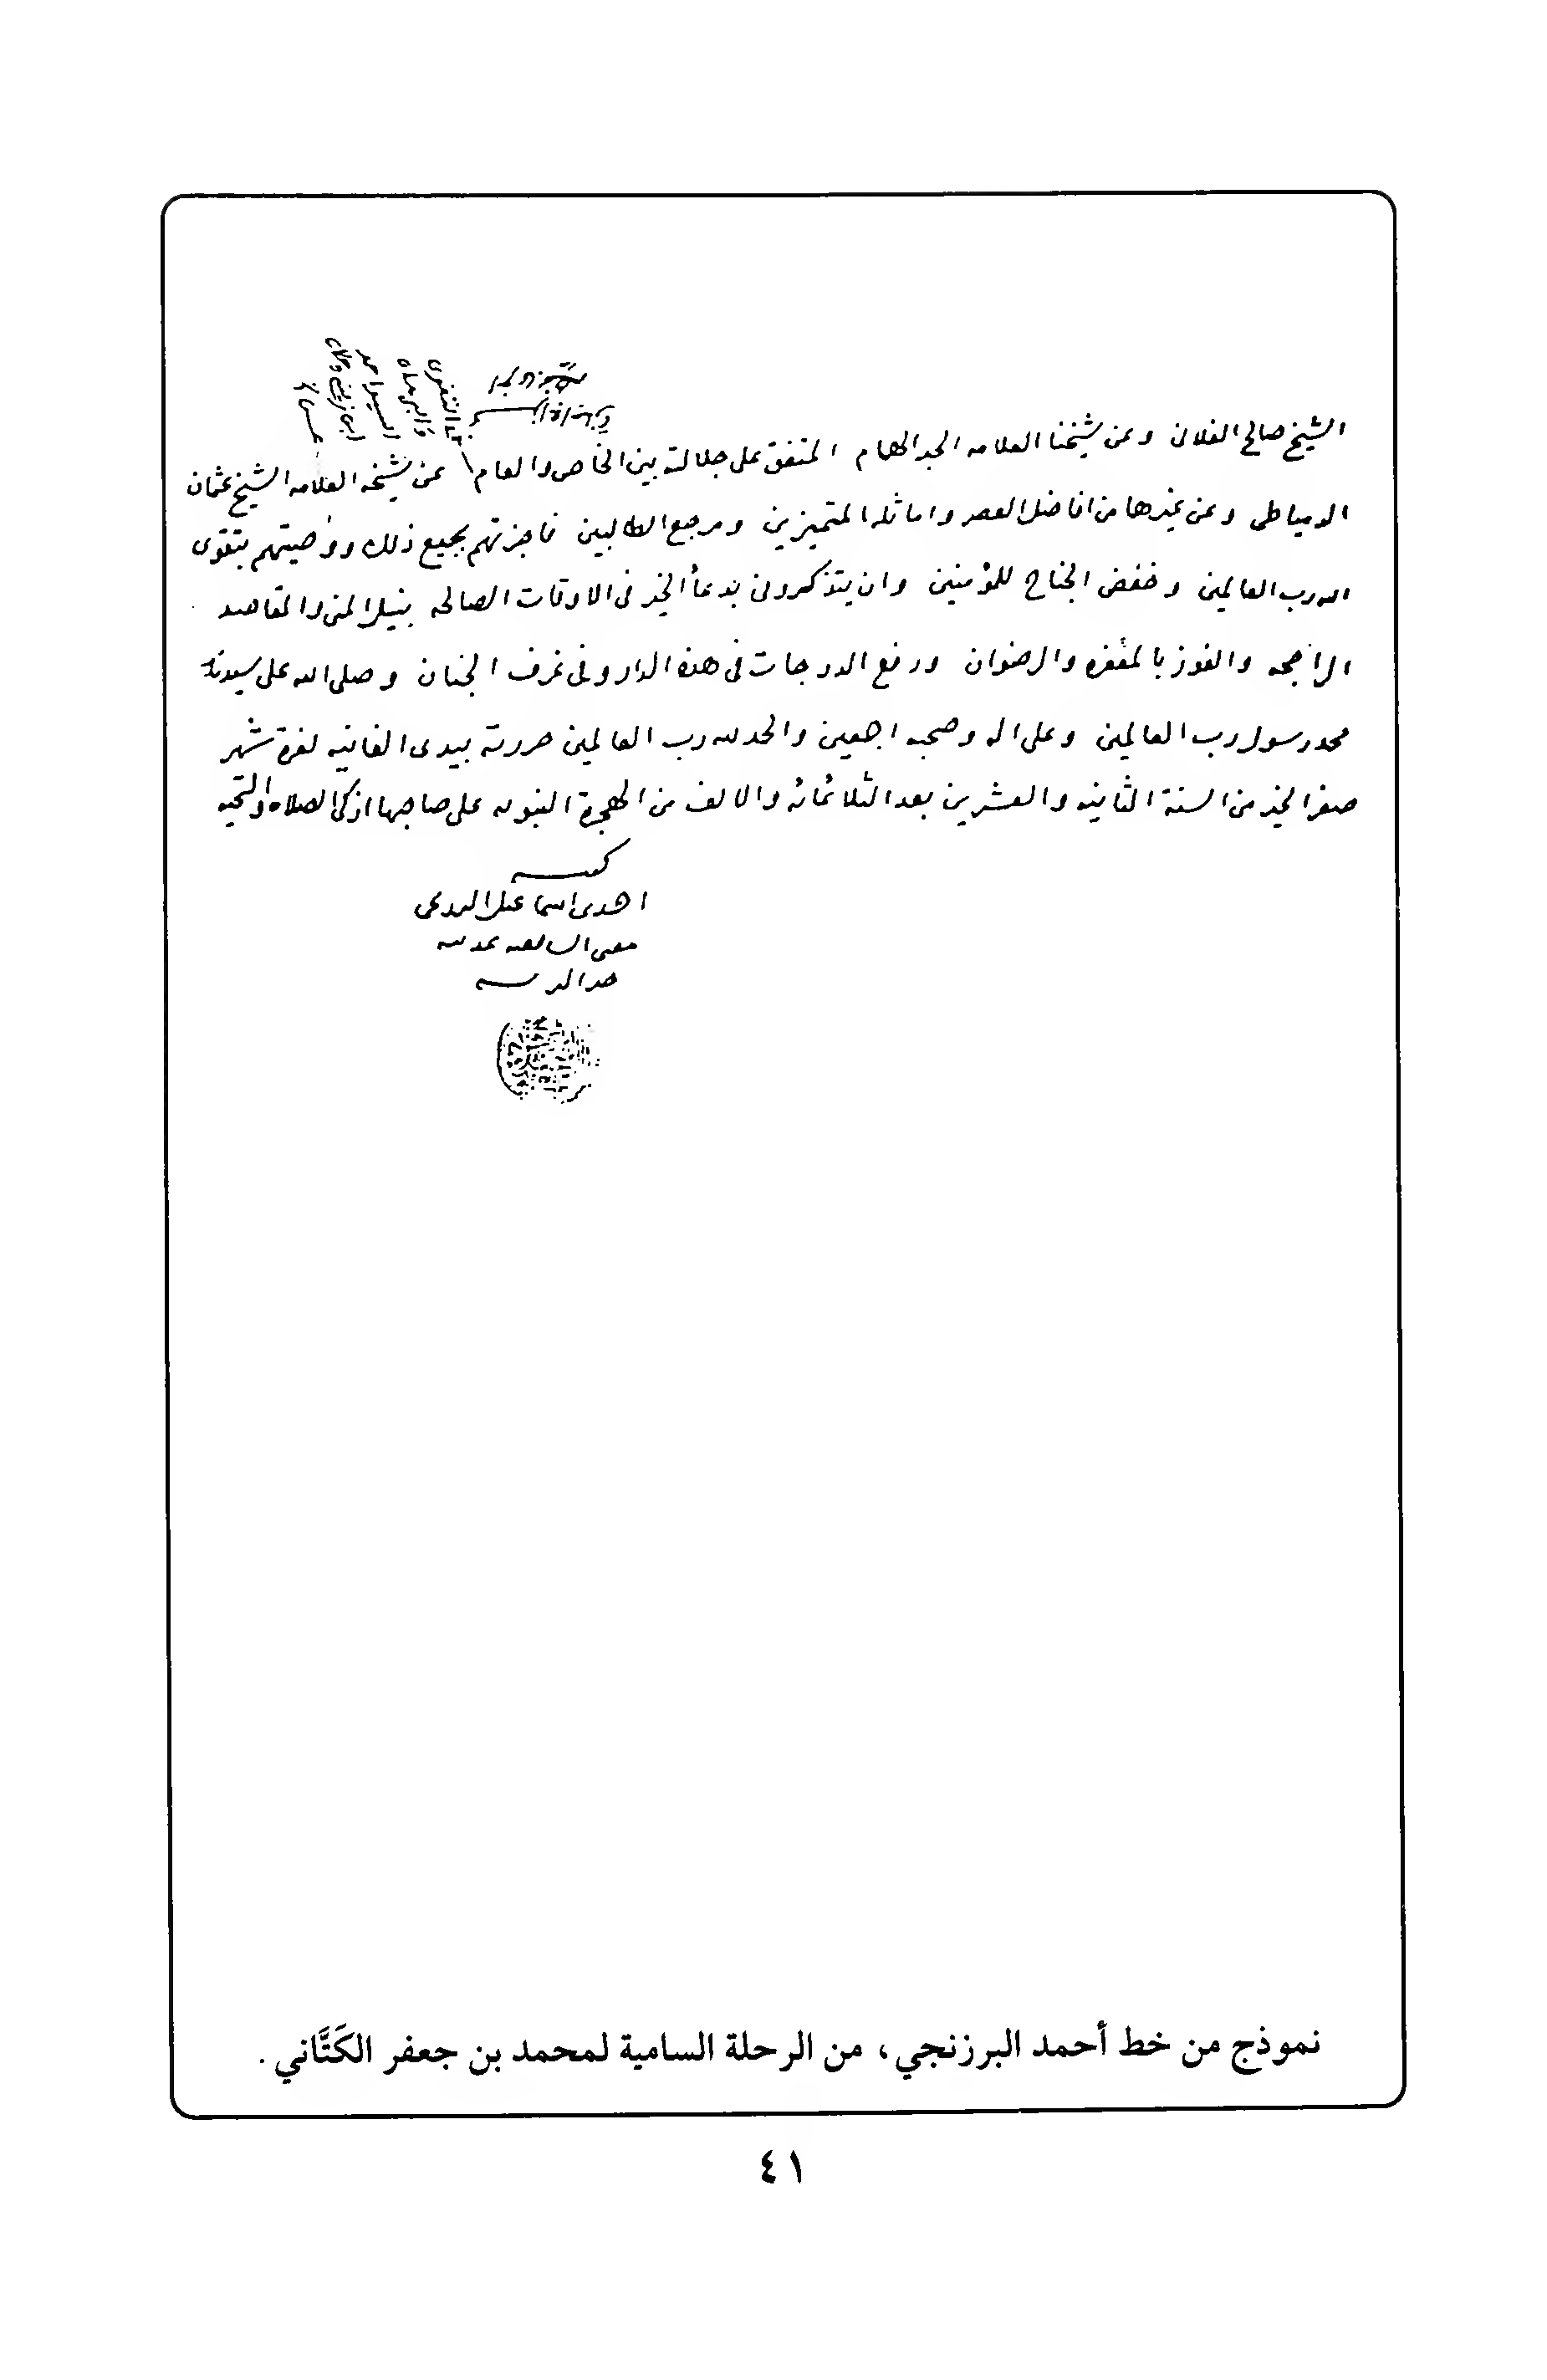 الشيخ صالح الفلاني وعن شيخنا العلامه الحبر الهمام المتفق على جلالته بين الخاص والعام عن شيخه العلامه الشيخ عثمان
السيد احمد
ابن زيني دحلان
الدمياطى وعن غيرهما من افاضل العصر واماثله المتميزين ومرجع الطالبين فاجزتهم بجميع ذلك ووصيتهم بتقوى
الله رب العالمين وخفض الجناح للمؤمنين وان يتذكرونى بدعأ الخير فى الاوقات الصالحه بنيل المنى والمقاصد
الراجحه والفوز بالمغفره والرضوان ورفع الدرجات فى هذه الدار وفى غرف الجنان وصلى الله على سيدنا
محمد رسول رب العالمين وعلى اله وصحبه اجمعين والحمد لله رب العالمين حررته بيدى الفانيه لغرة شهر
صفر الخير من السنة الثانيه والعشرين بعد الثلاثمائه والالف من الهجرة النبويه على صاحبها ازكى الصلاه والتحيه
كتبه
احمد بن اسماعيل البرزنجى
مفتى الشافعيه بمدينة
خير البريه
نموذج من خط أحمد البرزنجي، من الرحلة السامية لمحمد بن جعفر الكَتَّاني.
٤١